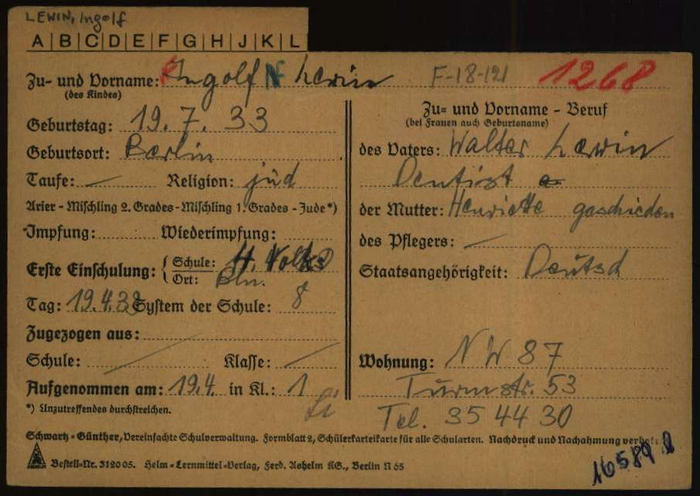 LEWIN, Ingolf
A|B|C|D|E|F|G|H|J|K|L
Zu- und Vorname: Ingolf Lewin F-18-121 1268
(des Kindes)
Geburtstag: 19. 7. 33
Geburtsort: Berlin
Taufe: — Religion: jüd
Arier - Mischling 2. Grades - Mischling 1. Grades - Jude*)
Impfung: Wiederimpfung:
Erste Einschulung: { Schule: H. Volks
Ort: Bln.
Tag: 19.4.39 System der Schule: 8
Zugezogen aus:
Schule: — Klasse: —
Aufgenommen am: 19.4. in Kl.: 1
*) Unzutreffendes durchstreichen.
Zu- und Vorname - Beruf
(bei Frauen auch Geburtsname)
des Vaters: Walter Lewin
Dentist
der Mutter: Henriette geschieden
des Pflegers: —
Staatsangehörigkeit: Deutsch
Wohnung: NW 87
Turmstr. 53
Tel. 35 44 30
Schwartz - Günther, Vereinfachte Schulverwaltung. Formblatt 2, Schülerkarteikarte für alle Schularten. Nachdruck und Nachahmung verboten.
Bestell-Nr. 312005. Helm-Lernmittel-Verlag, Ferd. Ashelm KG., Berlin N 65